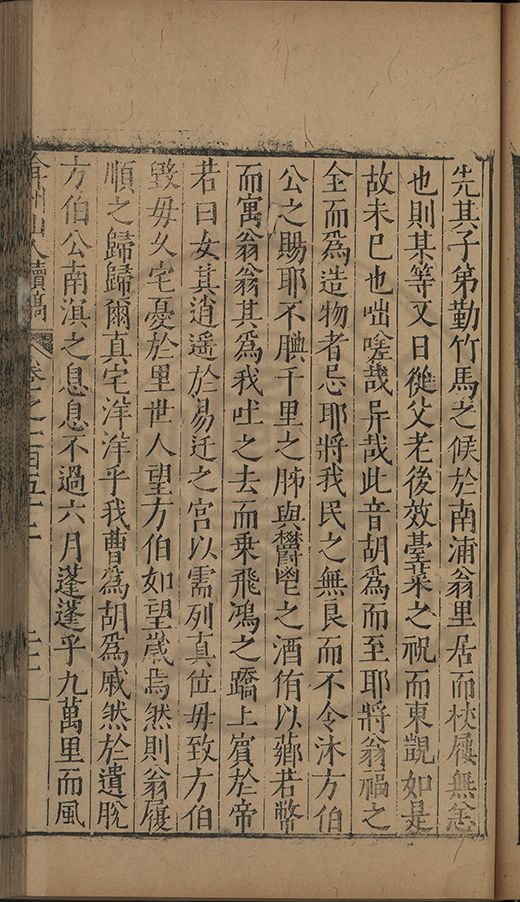 先其子弟勤竹馬之候於南浦翁里居而杖屨無恙
也則某等又日從父老後效臺萊之祝而東觀如是
故未已也咄嗟哉异哉此音胡為而至耶將翁福之
全而爲造物者忌耶將我民之無良而不令沐方伯
公之賜耶不腆千里之肺與欝鬯之酒侑以薌若幣
而寓翁翁其爲我吐之去而乗飛鴻之蹻上賓於帝
若曰女其逍遥於易迁之宮以需列真位毋致方伯
毀毋久宅憂於里世人望方伯如望歲焉然則翁履
順之歸歸爾真宅洋洋乎我曹爲胡爲戚然於遺脫
方伯公南滇之息息不過六月蓬蓬乎九萬里而風
弇州山人續稿 卷之一百五十二